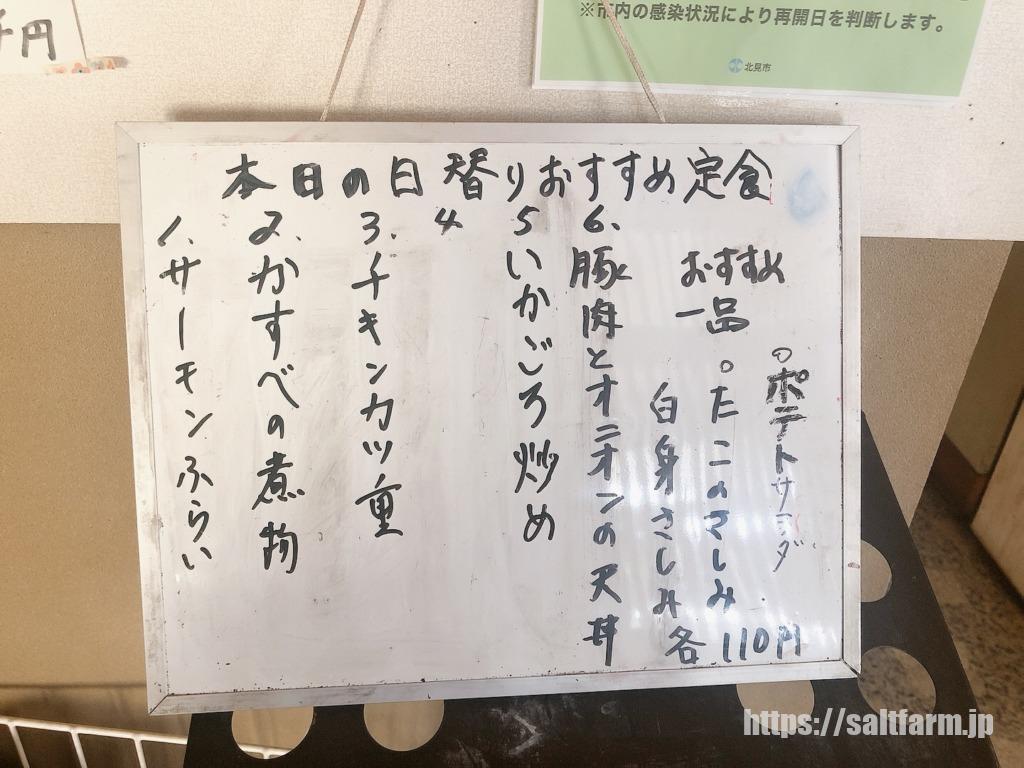 千円
※市内の感染状況により再開日を判断します。
北見市
本日の日替りおすすめ定食
1.サーモンふらい
2.かすべの煮物
3.チキンカツ重
4
5いかごろ炒め
6.豚肉とオニオンの天丼
おすすめ
一品
○ポテトサラダ
○たこのさしみ
白身さしみ
各110円
https://saltfarm.jp